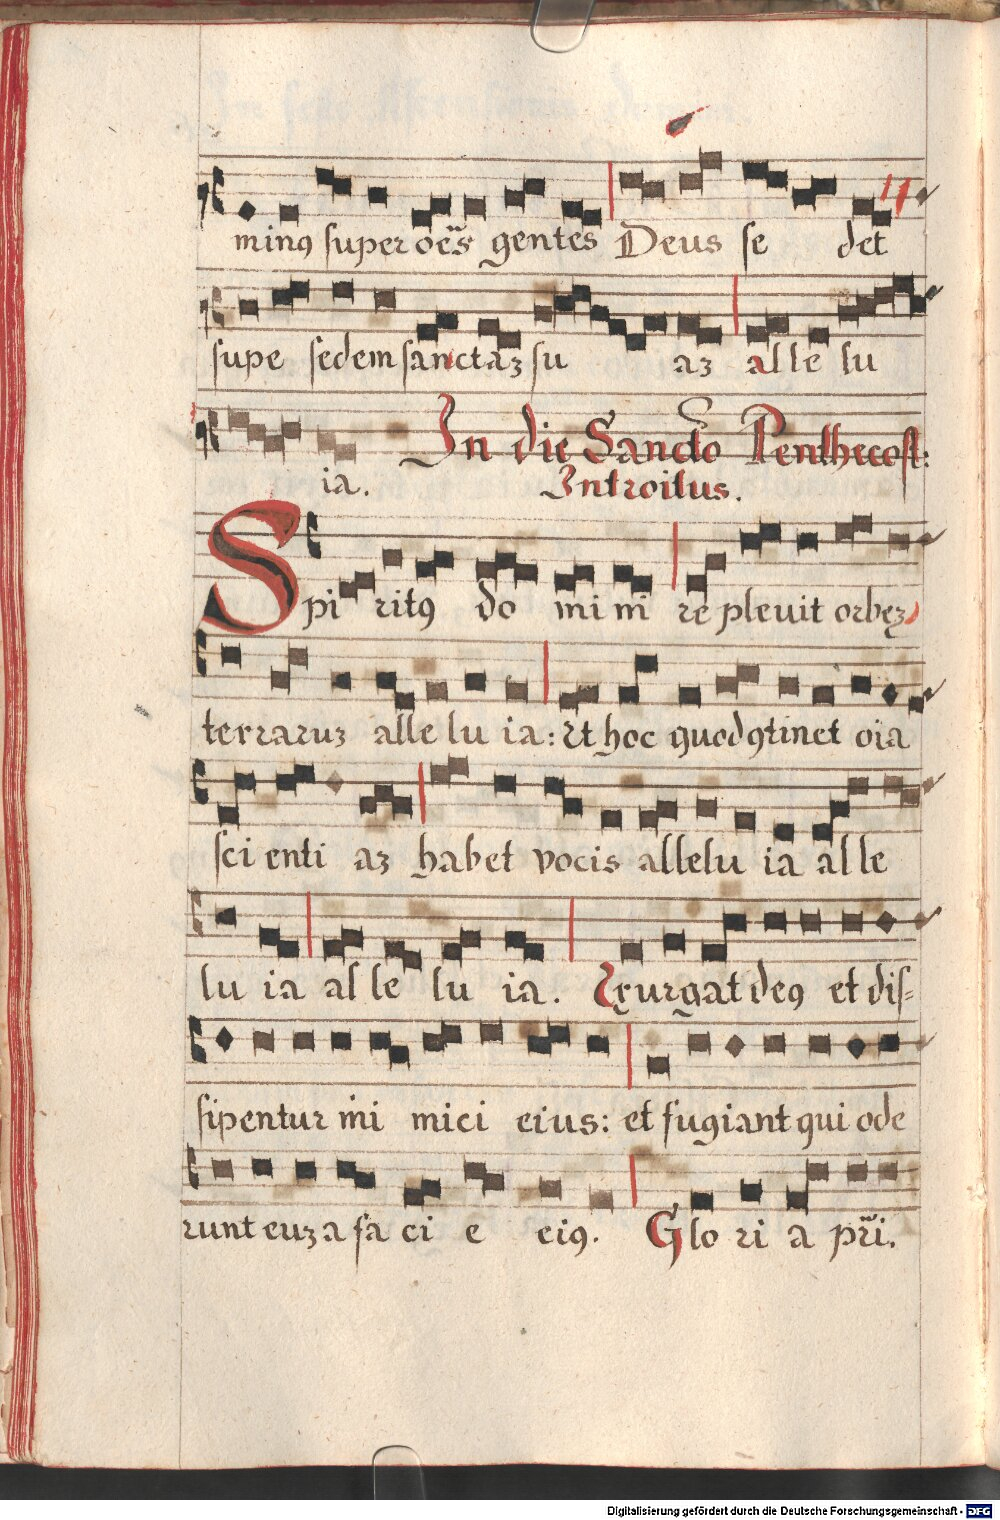 minꝯ super oēs gentes Deus se det
supe sedem sanctaꝫ su aꝫ alle lu
In die Sancto Penthecost:
ia. Introitus.
Spi ritꝯ do mi ni re pleuit orbeꝫ
terraruꝫ alle lu ia: Et hoc quod ꝯtinet oīa
sci enti aꝫ habet vocis allelu ia al le
lu ia al le lu ia. Exurgat deꝯ et dis-
sipentur ini mici eius: et fugiant qui ode
runt euꝫ a fa ci e eiꝯ. Glo ri a pr̄i.
Digitalisierung gefördert durch die Deutsche Forschungsgemeinschaft - DFG